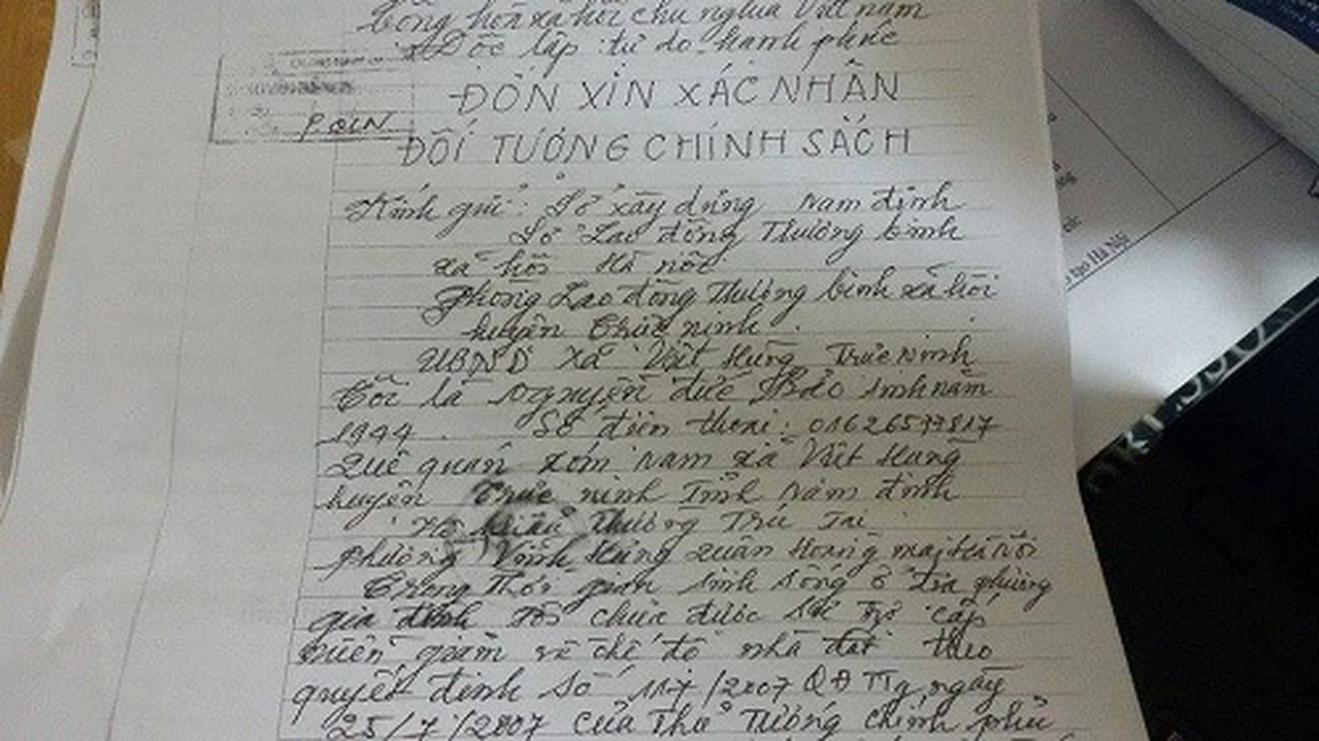 Cộng hoà xã hội chủ nghĩa Việt nam
Độc lập tự do hạnh phúc
P. QLN
ĐƠN XIN XÁC NHẬN
ĐỐI TƯỢNG CHÍNH SÁCH
Kính gửi: Sở xây dựng Nam định
Sở Lao động Thương binh
xã hội Hà nội
phòng Lao động Thương binh xã hội
huyện Trực ninh
UBND xã Việt Hùng Trực Ninh
Tôi là nguyễn đức Bảo sinh năm
1944. Số điện thoại: 01626577817
Quê quán xóm Nam xã Việt Hùng
huyện Trực ninh Tỉnh Nam định
Hộ khẩu Thường Trú Tại
phường Vĩnh Hưng quận Hoàng mai Hà Nội
Trong Thời gian sinh sống ở địa phương
gia đình tôi chưa được sự trợ cấp
miễn giảm về chế độ nhà đất theo
quyết định số 117/2007 QĐ TTg ngày
25/7/2007 của Thủ Tướng chính phủ
tạo Hà Nội